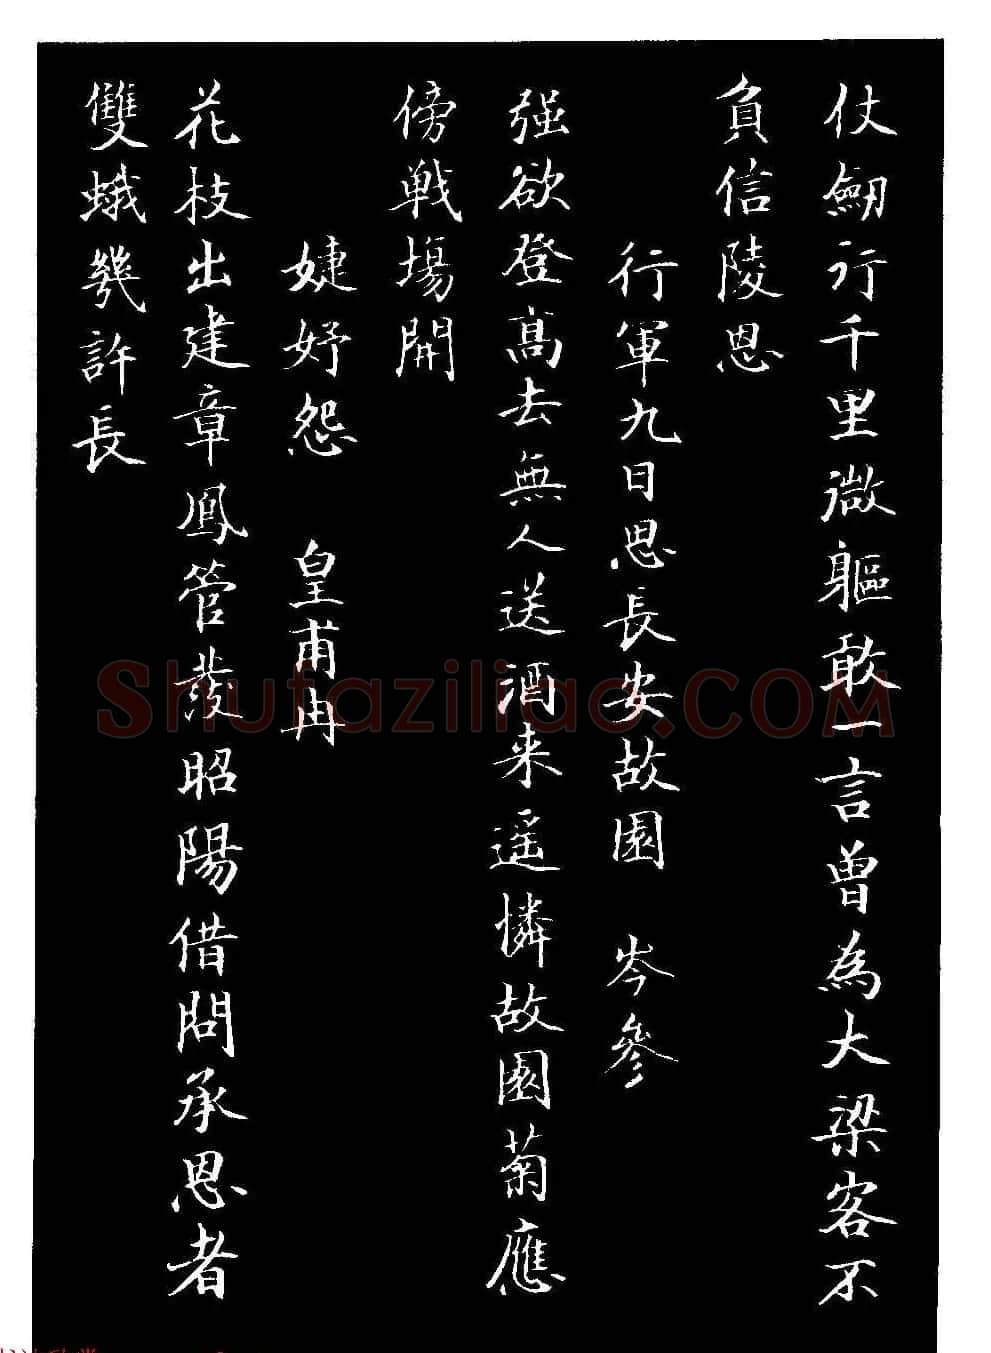 仗劒行千里微軀敢一言曾為大梁客不
負信陵恩
行軍九日思長安故園 岑參
强欲登髙去無人送酒来遥憐故園菊應
傍戰場開
婕妤怨 皇甫冉
花枝出建章鳳管發昭陽借問承恩者
雙蛾幾許長
Shufaziliao.COM